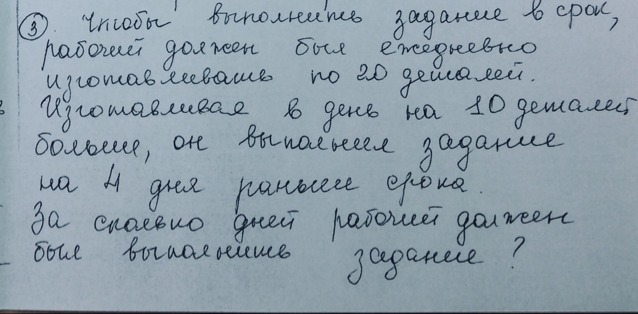 ③. Чтобы выполнить задание в срок,
рабочий должен был ежедневно
изготавливать по 20 деталей.
Изготавливая в день на 10 деталей
больше, он выполнил задание
на 4 дня раньше срока.
За сколько дней рабочий должен
был выполнить задание?